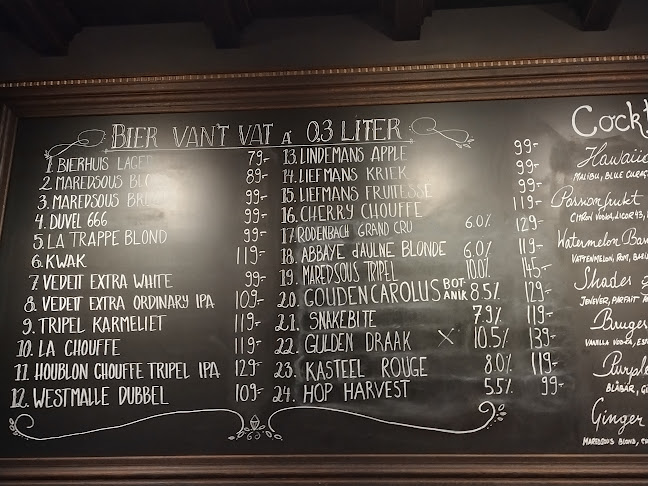 BIER VAN'T VAT A' 0,3 LITER
1. BIERHUIS LAGER 79-
2. MAREDSOUS 89-
3. MAREDSOUS 99-
4. DUVEL 666 99-
5. LA TRAPPE BLOND 99-
6. KWAK 119-
7. VEDETT EXTRA WHITE 99-
8. VEDETT EXTRA ORDINARY IPA 109-
9. TRIPEL KARMELIET 119-
10. LA CHOUFFE 119-
11. HOUBLON CHOUFFE TRIPEL IPA 129-
12. WESTMALLE DUBBEL 109-
13. LINDEMANS APPLE 99-
14. LIEFMANS KRIEK 99-
15. LIEFMANS FRUITESSE 99-
16. CHERRY CHOUFFE 119-
17. RODENBACH GRAND CRU 6.0% 129-
18. ABBAYE d'AULNE BLONDE 6.0% 119-
19. MAREDSOUS TRIPEL 10.0% 145-
20. GOUDEN CAROLUS BOT ANIK 8.5% 129-
21. SNAKEBITE 7.9% 119-
22. GULDEN DRAAK X 10.5% 139-
23. KASTEEL ROUGE 8.0% 119-
24. HOP HARVEST 5.5% 99-
Cockt
Hawaiia
MALIBU, BLUE CURAÇ
Passionfrukt
CITRON VODKA, LICOR 43,
Watermelon
WATERMELON, ROM,
Shades
JENEVER, PARFAIT
Bruger
VANILLA VODKA,
Purple
BLÅBÄR,
Ginger
MAREDSOUS BLOND,